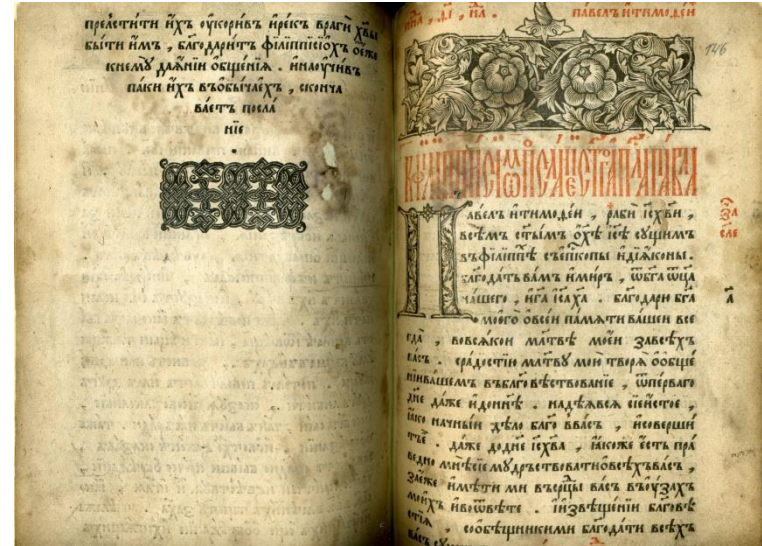 прелстити и҆́хъ ᲂу҆кори́въ и҆ре́къ враги̑ хв҃ы
бы́ти и҆̀мъ , благодари́тъ філіппісі́ѡхъ ѡ҆е́же
кнемꙋ̀ даѧ́нїи ѻ҆бще́нїѧ . и҆наᲂучи́въ
па́ки и҆́хъ въѻ҆бы́чаехъ , сконча
ва́етъ посла́
нїе
па́велъ и҆тимоѳе́й
146
Па́велъ и҆тимоѳе́й , раби̑ і҆с҃хв҃и ,
всѣ́мъ ст҃ы́мъ ѻ҆хѣ̀ і҆с҃ѣ сꙋ́щимъ
въфїлі́ппѣ съе҆пи́скопы и҆дїа́коны .
благода́ть ва́мъ и҆ми́ръ , ѿбг҃а ѻ҆ц҃а
на́шего , и҆гд҇а і҆с҃а х҃а . благодарю̀ бг҃а
моего̀ ѻ҆все́й па́мѧти ва́шей все
гда̀ , вовсѧ́кой мл҃твѣ мое́й завсѣ́хъ
ва́съ . срадостїю мл҃твꙋ мою̀ творѧ̀ ѻ҆ѻ҆бще́
нїи ва́шемъ въбл҃говѣствова́нїе , ѿпе́рваго
дн҃е да́же и҆донн҃ѣ . надѣ́ѧвсѧ сїе́ и҆́стое ,
ꙗ҆́ко наче́ньїи дѣ́ло бла́го вва́съ , и҆соверши́
тъ е҆̀ . да́же додн҃е і҆с҃хв҃а , ꙗ҆́коже є҆́сть пра́
ведно мнѣ̀ сїѐ мꙋ́дрствовати ѻ҆всѣ́хъ ва́съ ,
зане́же и҆мѣ́ти ми въсрц҃ы ва́съ въᲂу҆́захъ
мои́хъ и҆воѿвѣ́тѣ . и҆и҆звѣще́нїи благовѣ́
стїѧ , сооб́щникими благода́ти всѣ́хъ